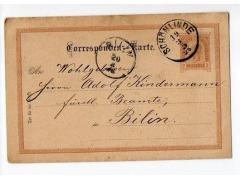 Correspondenz-Karte.
SCHÖNLINDE
BILIN
20
An Wohlgeboren
Herrn Adolf Kindermann
fürstl. Beamte,
Bilin.